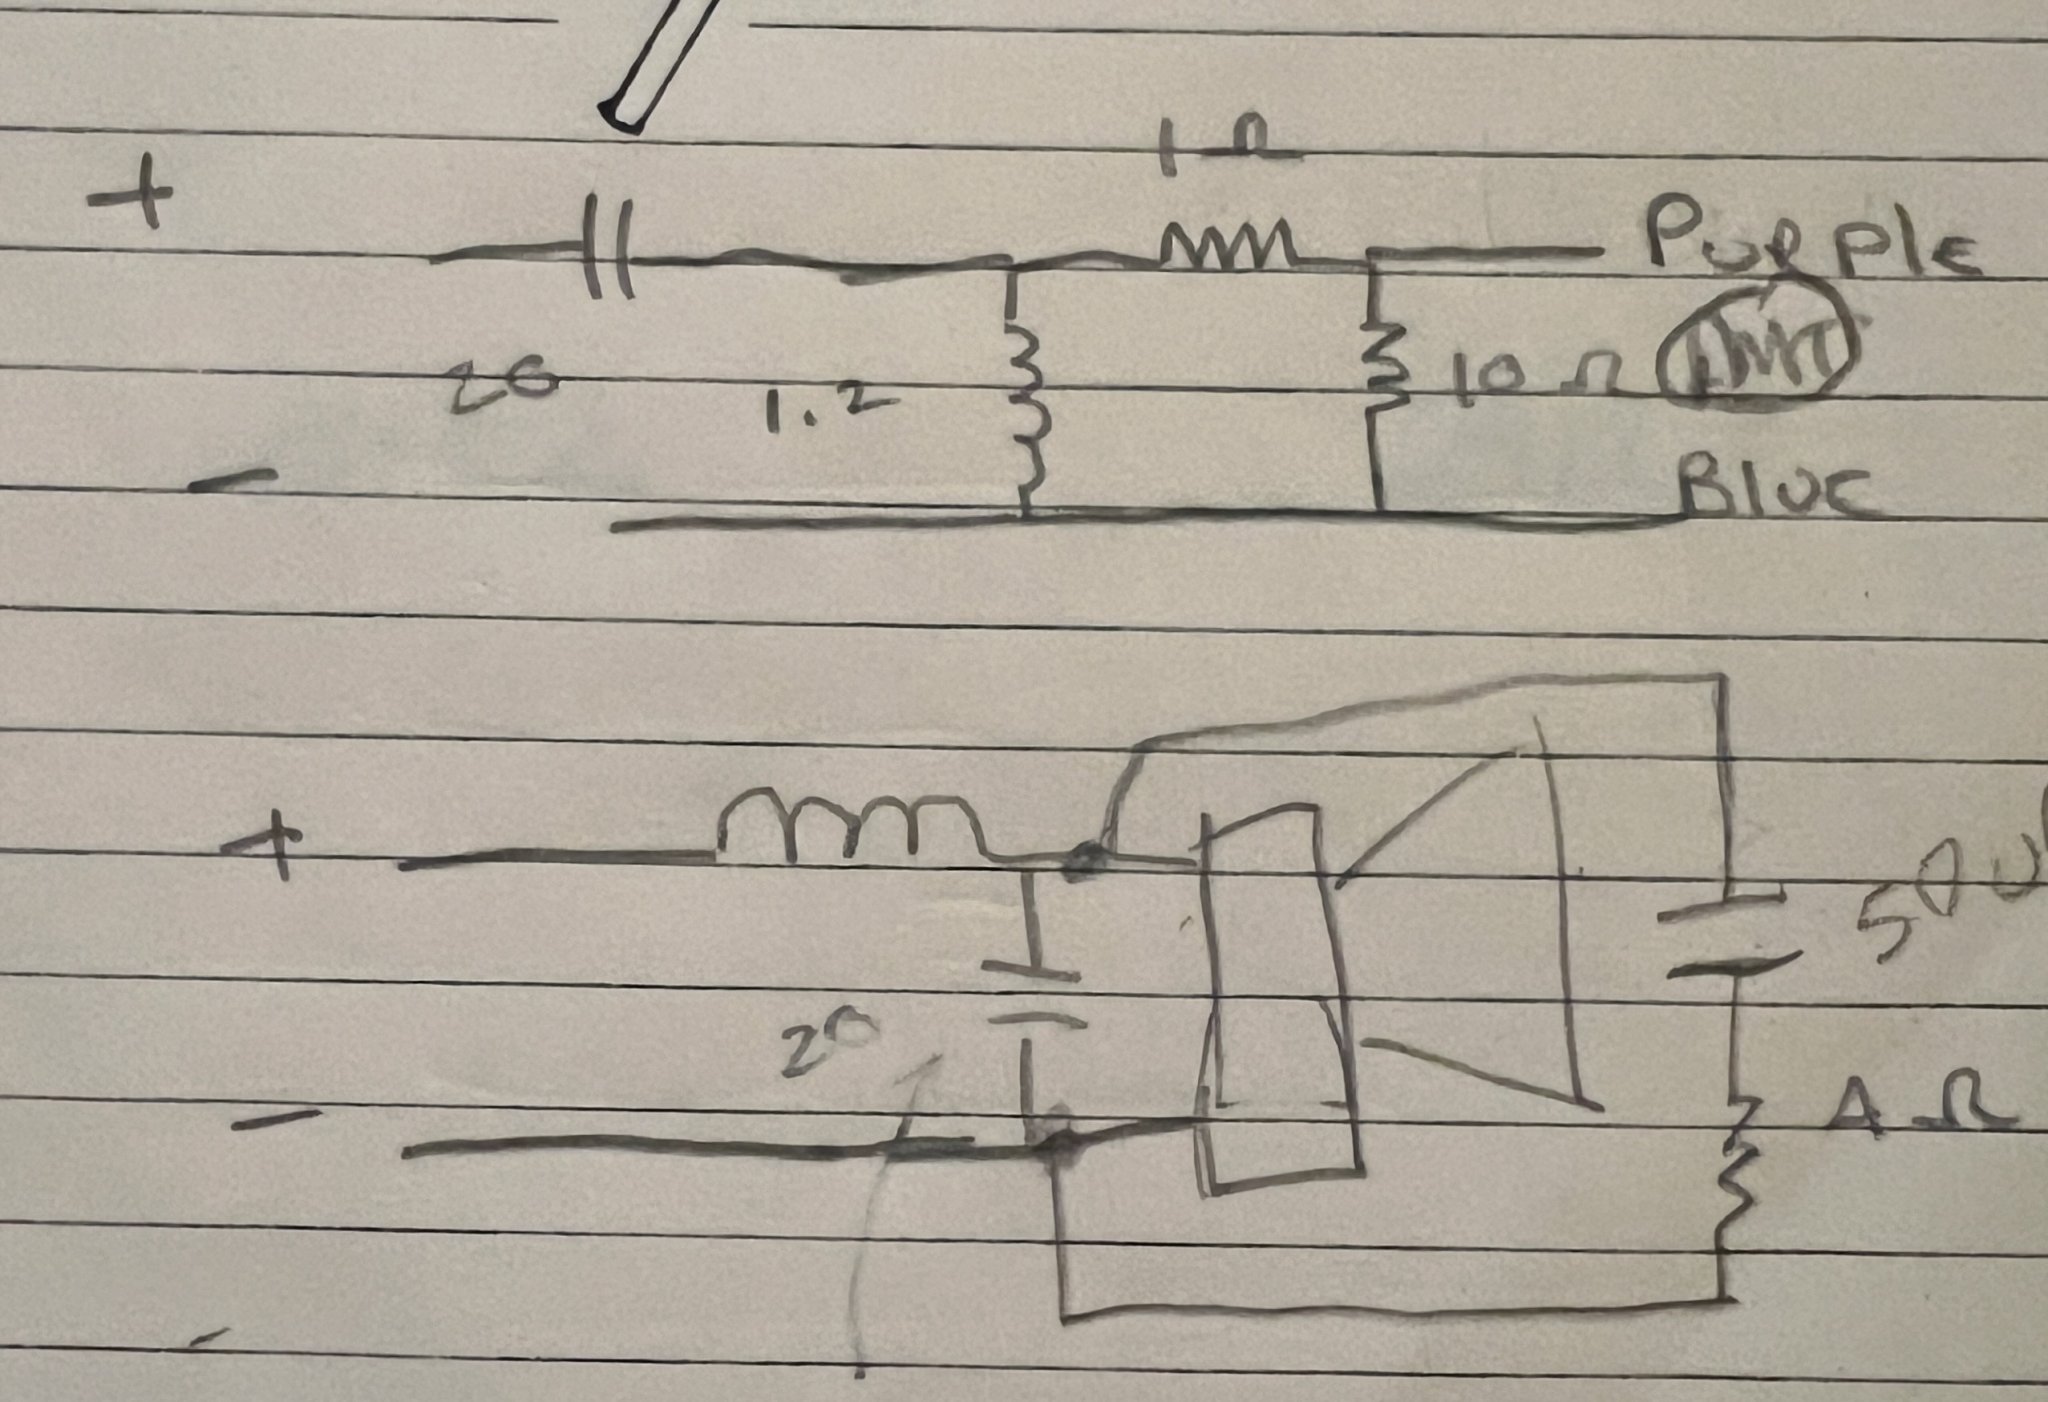 1 Ω
+
Purple
20
1.2
10 Ω
-
Blue
+
50u
20
-
4 Ω
-